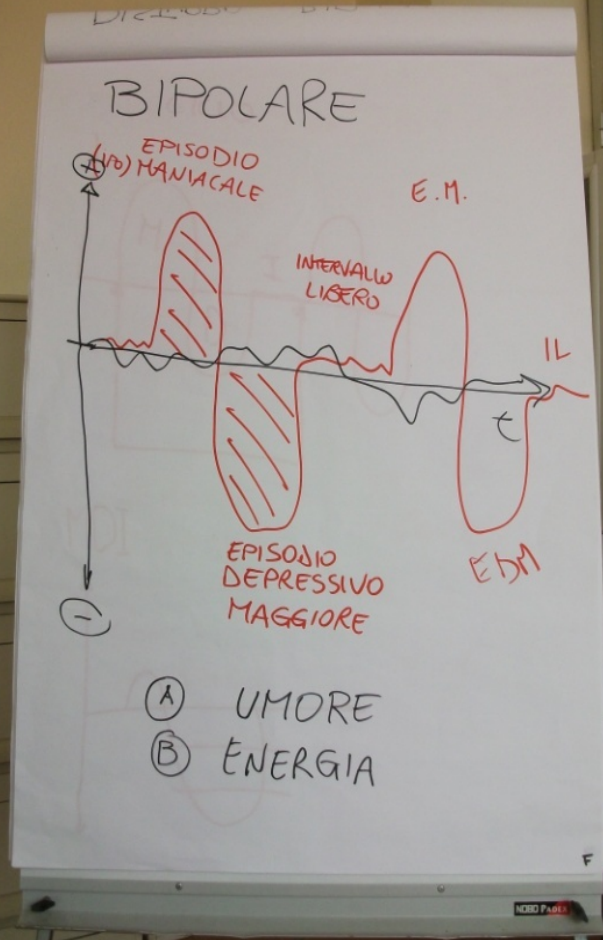 BIPOLARE
EPISODIO
(IPO) MANIACALE
+
E.M.
INTERVALLO
LIBERO
IL
t
EPISODIO
DEPRESSIVO
MAGGIORE
EDM
−
A UMORE
B ENERGIA
F
NOBO